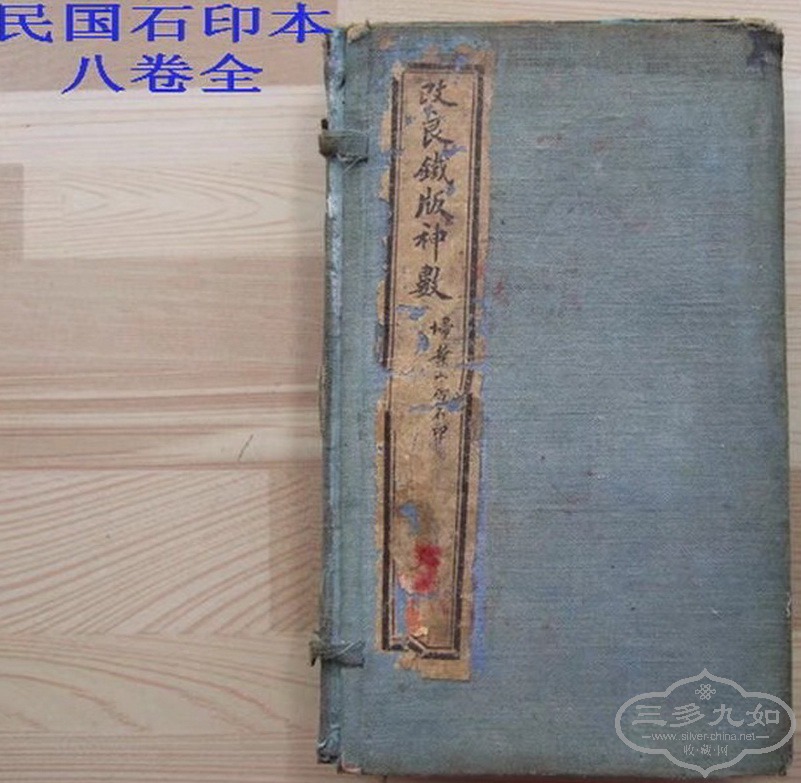 民国石印本
八卷全
改良鐵版神數
埽葉山房石印
三多九如
www.silver-china.net
收·藏·网